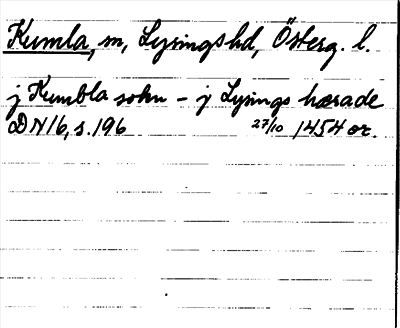 Kumla, sn, Lysingshd, Österg. l.
j Kumbla sokn – j Lysings hærade
DN 16, s. 196 27/10 1454 or.